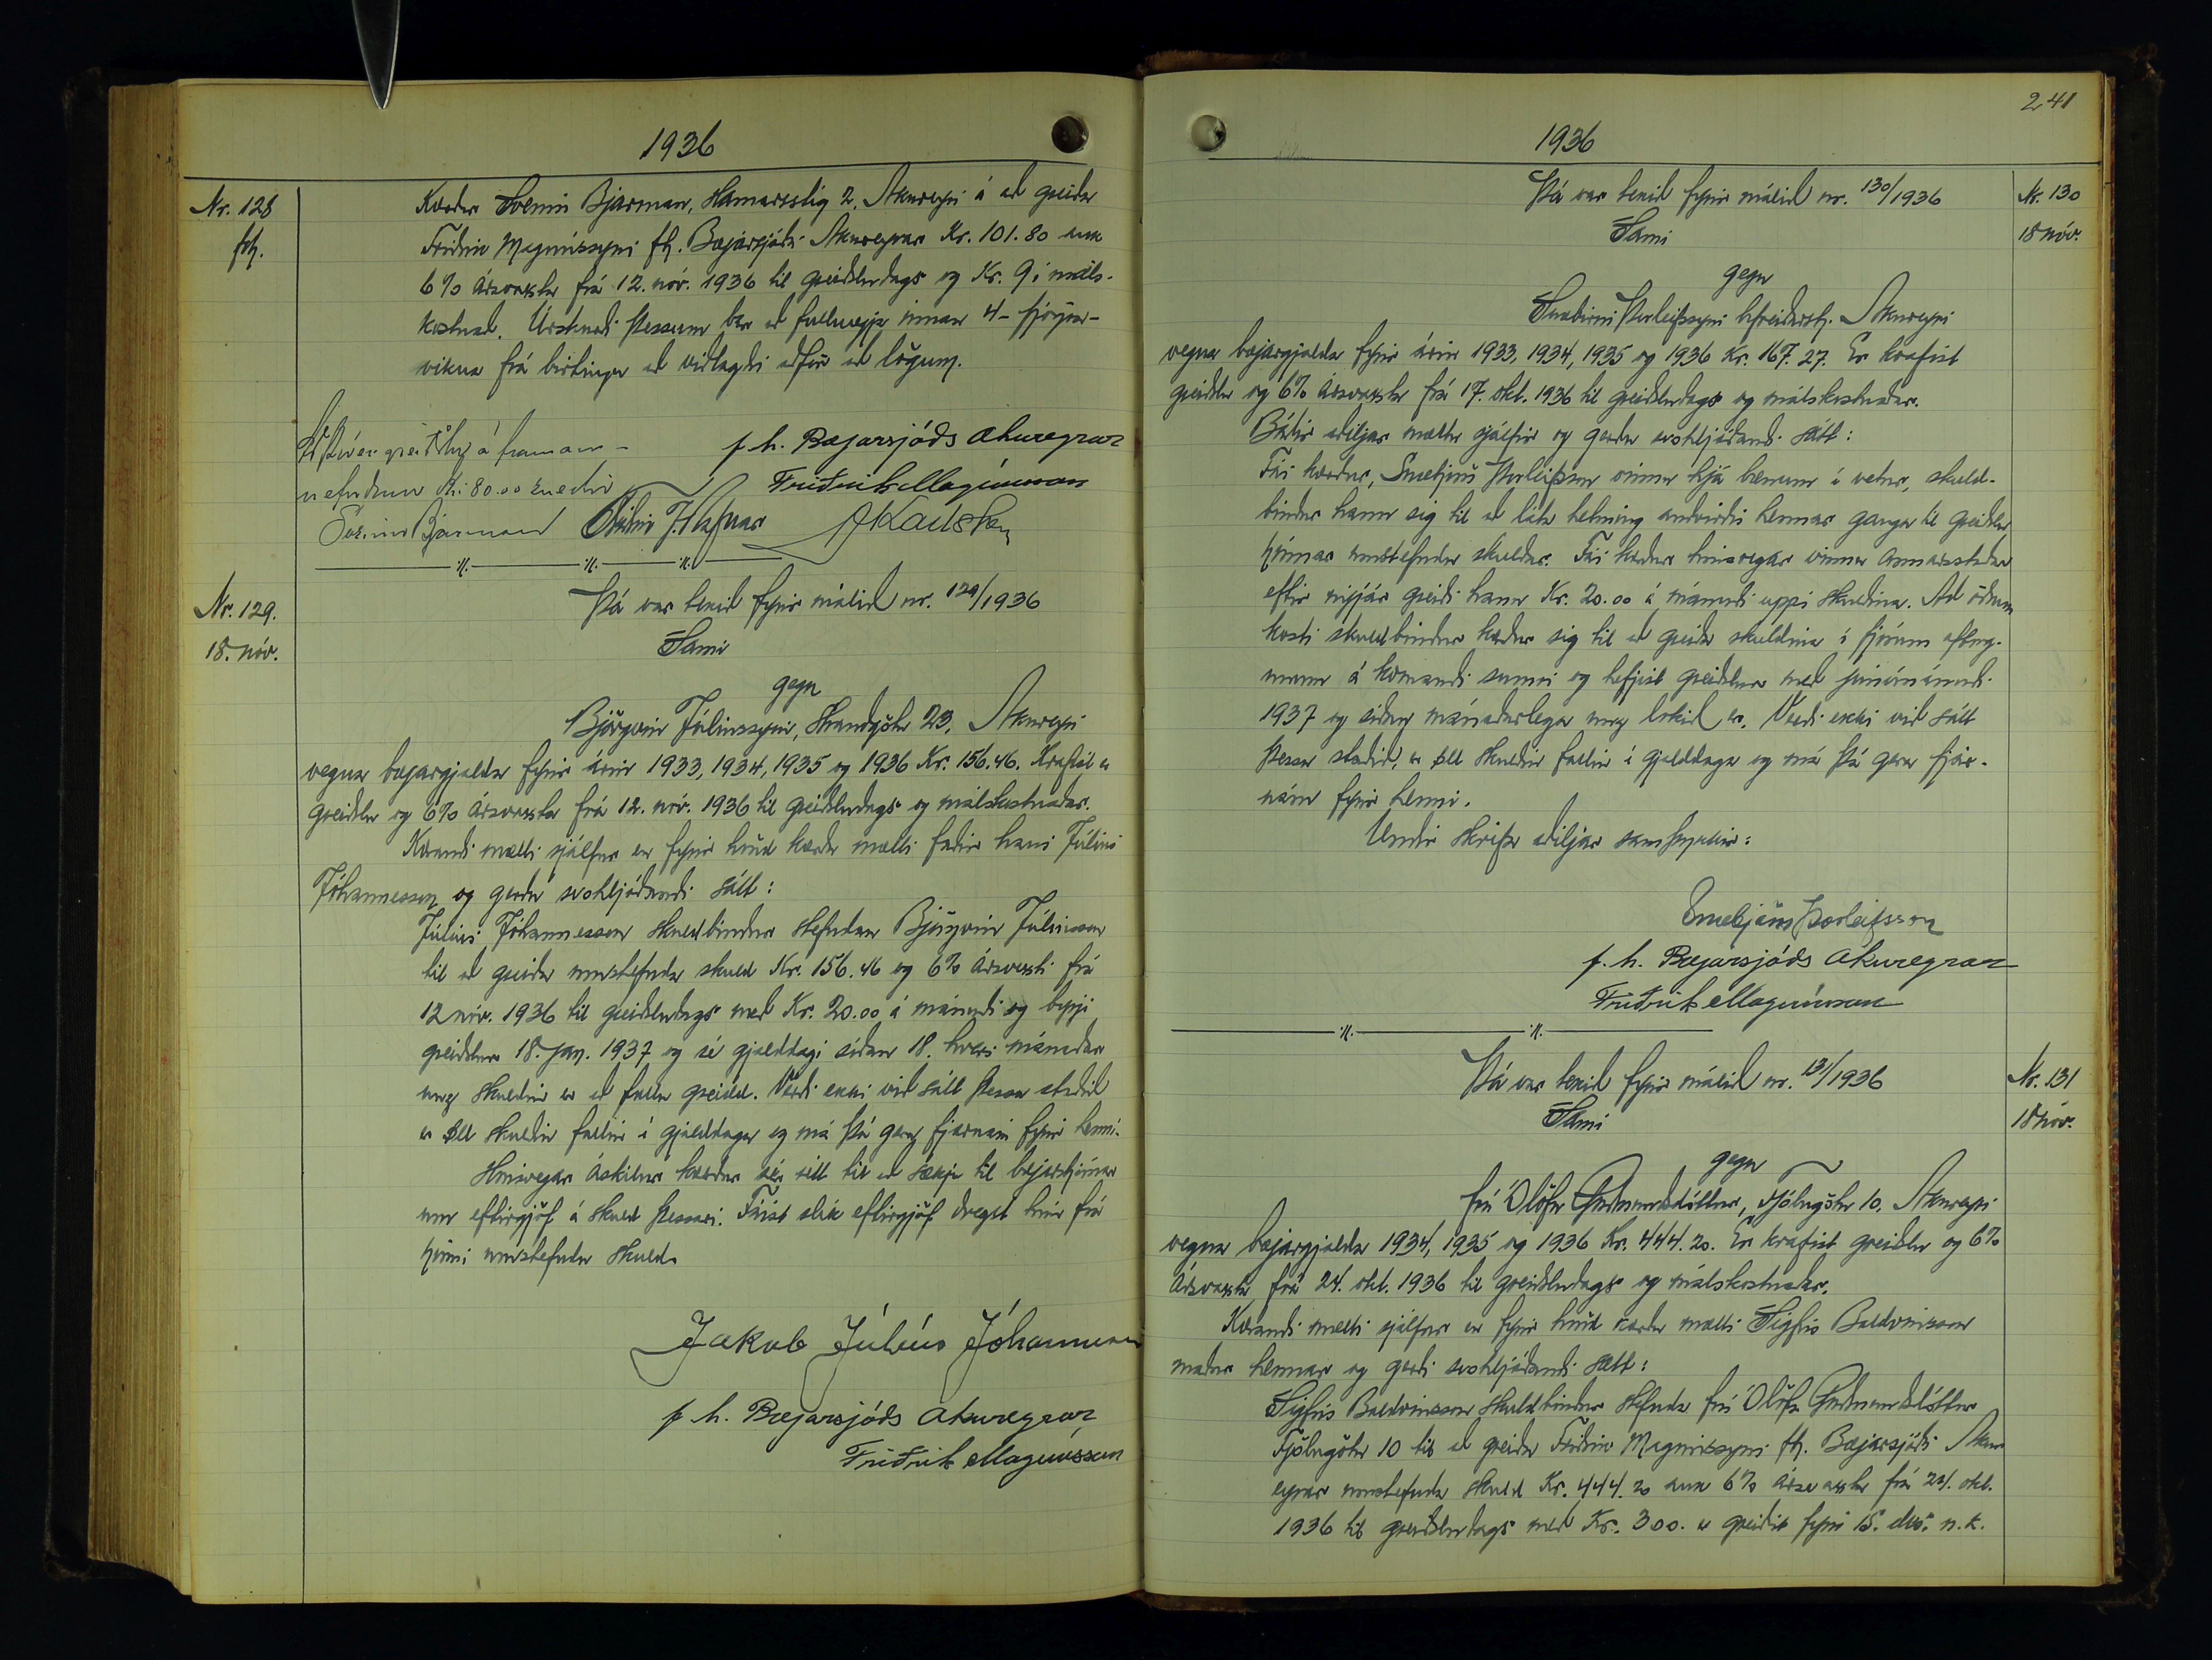 1936
Nr. 128
fh.
Kærður Sveinn Bjarman, Hamarsstíg 2, Akureyri á að greiða
Friðrik Magnússyni fh. Bæjarsjóðs Akureyrar Kr. 101.80 auk
6% ársvaxta frá 12. nóv. 1936 til greiðsludags og Kr. 9 í máls-
kostnað. Úrskurði þessum ber að fullnægja innan 4 - fjögra -
vikna frá birtingu að viðlagðri aðför að lögum.
á framan-
nefndum Kr. 80.00
Sveinn Bjarman
f. h. Bæjarsjóðs Akureyrar
Friðrik Magnússon
Nr. 129.
18. nóv.
Þá var tekið fyrir málið nr. 129/1936
Sami
gegn
Björgvin Júlíussyni, Strandgötu 23, Akureyri
vegna bæjargjalda fyrir árin 1933, 1934, 1935 og 1936 Kr. 156.46. Krafist er
greiðslu og 6% ársvaxta frá 12. nóv. 1936 til greiðsludags og málskostnaðar.
Kærandi mætti sjálfur en fyrir hönd kærða mætti faðir hans Júlíus
Jóhannesson og gerðu svohljóðandi sátt:
Júlíus Jóhannesson skuldbindur stefndan Björgvin Júlíusson
til að greiða umstefnda skuld Kr. 156.46 og 6% ársvexti frá
12 nóv. 1936 til greiðsludags með Kr. 20.00 á mánuði og byrji
greiðslur 18. jan. 1937 og sé gjalddagi síðan 18. hvers mánaðar
unz skuldin er að fullu greidd. Verði ekki við sátt þessa staðið
er öll skuldin fallin í gjalddaga og má þá gera fjárnám fyrir henni.
Hinsvegar áskilur kærður sér rétt til að sækja til bæjarstjórnar
um eftirgjöf á skuld þessari. Fáist slík eftirgjöf dregst hún frá
hinni umstefndu skuld.
Jakob Júlíus Jóhannesson
f. h. Bæjarsjóðs Akureyrar
Friðrik Magnússon
241
1936
Nr. 130
18 nóv.
Þá var tekið fyrir málið nr. 130/1936
Sami
gegn
Snæbirni Þorleifssyni bifreiðarstj. Akureyri
vegna bæjargjalda fyrir árin 1933, 1934, 1935 og 1936 Kr. 167.27. Er krafist
greiðslu og 6% ársvaxta frá 17. okt. 1936 til greiðsludags og málskostnaðar.
Báðir aðiljar mættu sjálfir og gerðu svohljóðandi sátt:
Fái kærður, Snæbjörn Þorleifsson vinnu hjá bænum í vetur, skuld-
bindur hann sig til að láta helming andvirðis hennar ganga til greiðslu
hinnar umstefndu skuldar. Fái kærður hinsvegar vinnu annarsstaðar
eftir nýjár greiði hann Kr. 20.00 á mánuði uppí skuldina. Að öðrum
kosti skuldbindur kærður sig til að greiða skuldina í fjórum afborg-
unum á komandi sumri og hefjist greiðslur með júnímánuði
1937 og síðan mánaðarlega unz lokið er. Verði ekki við sátt
þessa staðið, er öll skuldin fallin í gjalddaga og má þá gera fjár-
nám fyrir henni.
Undir skrifa aðiljar samþykkir:
Snæbjörn Þorleifsson
f. h. Bæjarsjóðs Akureyrar
Friðrik Magnússon
Nr. 131
18 nóv.
Þá var tekið fyrir málið nr. 131/1936
Sami
gegn
frú Ólöfu Guðmundsdóttur, Fjólugötu 10, Akureyri
vegna bæjargjalda 1934, 1935 og 1936 Kr. 444.20. Er krafist greiðslu og 6%
ársvaxta frá 24. okt. 1936 til greiðsludags og málskostnaðar.
Kærandi mætti sjálfur en fyrir hönd kærðu mætti Sigfús Baldvinsson
maður hennar og gerði svohljóðandi sátt:
Sigfús Baldvinsson skuldbindur stefnda frú Ólöfu Guðmundsdóttur
Fjólugötu 10 til að greiða Friðrik Magnússyni fh. Bæjarsjóðs Akur
eyrar umstefnda skuld Kr. 444.20 auk 6% ársvaxta frá 24. okt.
1936 til greiðsludags með Kr. 300. er greiðist fyrir 15. des. n.k.